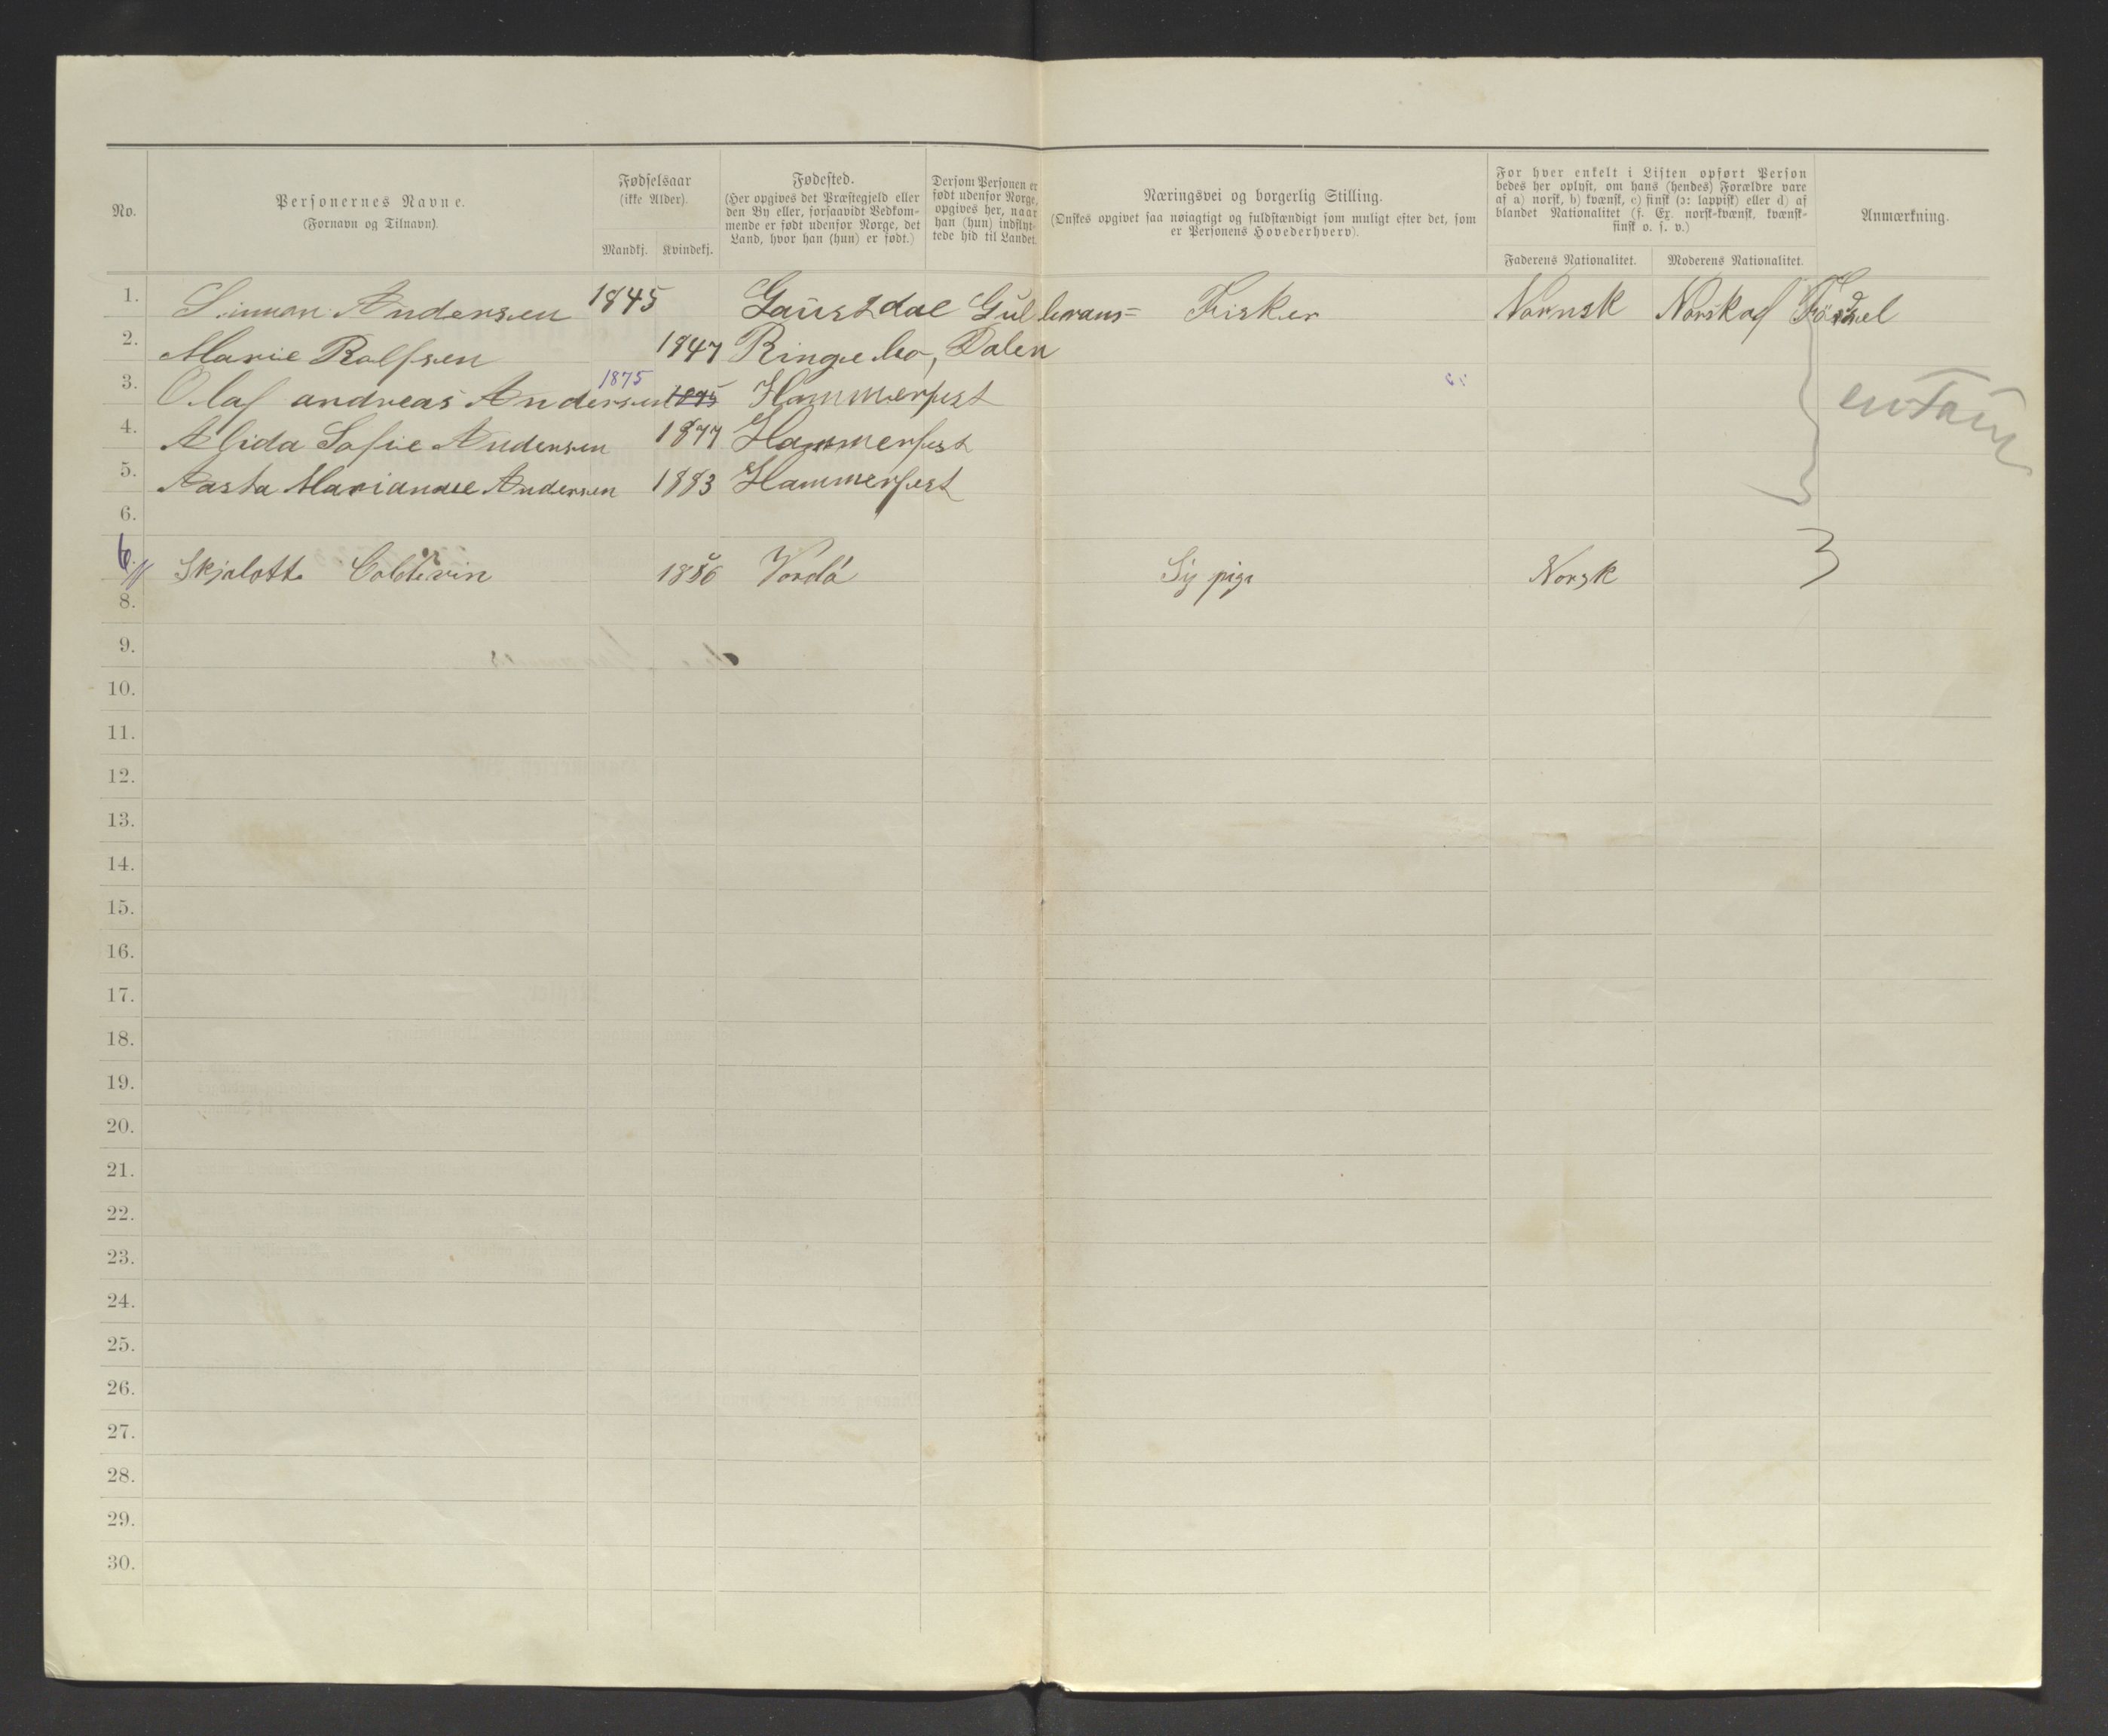 No.
Personernes Navne.
(Fornavn og Tilnavn).
Fødselsaar
(ikke Alder).
Mandkj. Kvindekj.
Fødested.
(Her opgives det Præstegjeld eller
den By eller, forsaavidt Vedkom-
mende er født udenfor Norge, det
Land, hvor han (hun) er født.)
Dersom Personen er
født udenfor Norge,
opgives her, naar
han (hun) indflyt-
tede hid til Landet.
Næringsvei og borgerlig Stilling.
(Ønskes opgivet saa nøiagtigt og fuldstændigt som muligt efter det, som
er Personens Hovederhverv).
For hver enkelt i Listen opført Person
bedes her oplyst, om hans (hendes) Forældre vare
af a) norsk, b) kvænsk, c) finsk (ɔ: lappisk) eller d) af
blandet Nationalitet (f. Ex. norsk-kvænsk, kvænsk-
finsk o. s. v.)
Faderens Nationalitet. Moderens Nationalitet.
Anmærkning.
1. Simon Andersen 1845 Gausdal Gulbrans= Fisker Nornsk Norsk af Födsel
2. Marie Rolfsen 1847 Ringebo, Dalen
3. Olaf andreas Andersen 1875 1875 Hammerfest
4. Alida Sofie Andersen 1877 Hammerfest
5. Aasta Marianne Andersen 1883 Hammerfest
en Fam
6.
6. Skjalotte Coldevin 1856 Vordö Sy pige Norsk
8.
9.
10.
11.
12.
13.
14.
15.
16.
17.
18.
19.
20.
21.
22.
23.
24.
25.
26.
27.
28.
29.
30.